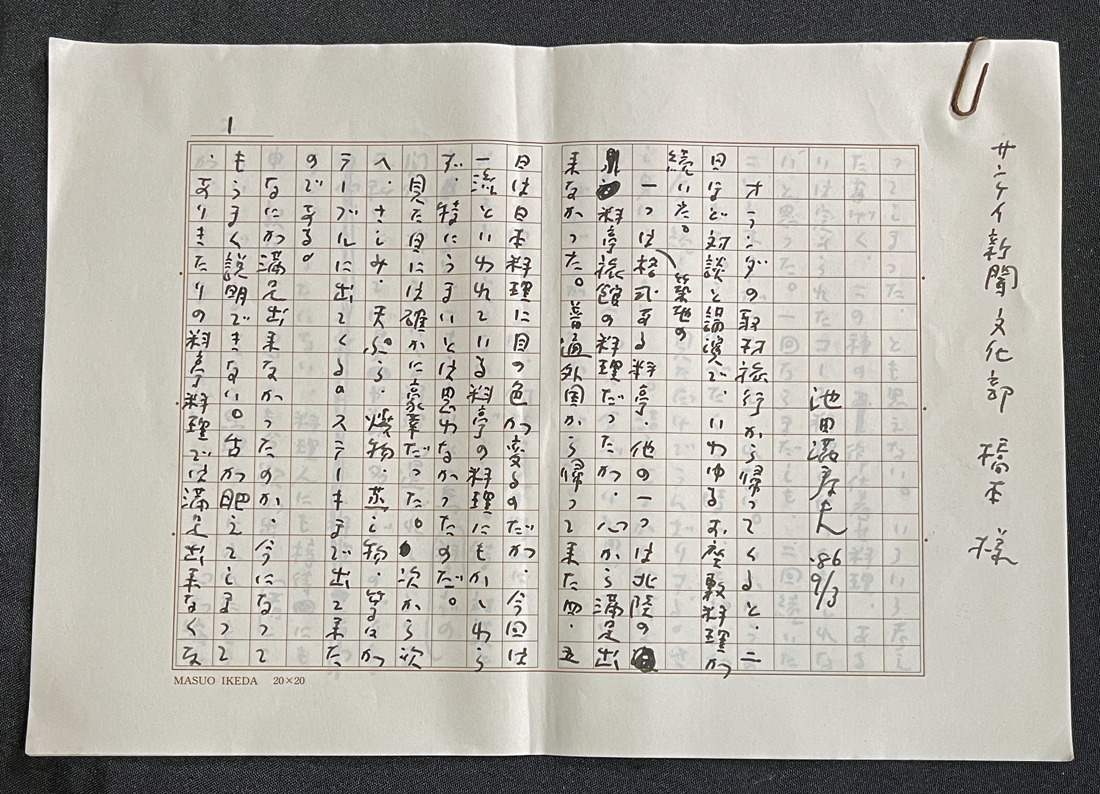 サンケイ新聞文化部 橋本様
池田満寿夫 '86 9/3
オランダの取材旅行から帰ってくると、二
日ほど対談と講演で、いわゆるお座敷料理が
続いた。
築地の
一つは格式ある料亭、他の一つは北陸の
料亭旅館の料理だったが、心から満足出
来なかった。普通外国から帰って来た四、五
日は日本料理に目の色が変るのだが、今回は
一流といわれている料亭の料理にもかゝわら
ず、特にうまいとは思わなかったのだ。
見た目には確かに豪華だった。次から次
へ、さしみ、天ぷら、焼物、蒸し物、等々が
テーブルに出てくる。ステーキまで出て来た
のである。
なにが満足出来なかったのか、今になって
もうまく説明できない。舌が肥えてしまって
、ありきたりの料亭料理では満足出来なくな
1
MASUO IKEDA 20×20